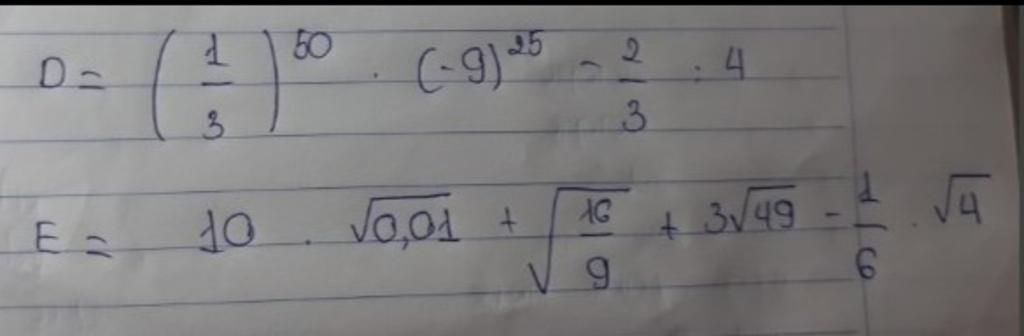 D = (1/3)^50 . (-9)^25 - 2/3 : 4
E = 10 . √0,01 + √(16/9) + 3√49 - 1/6 . √4